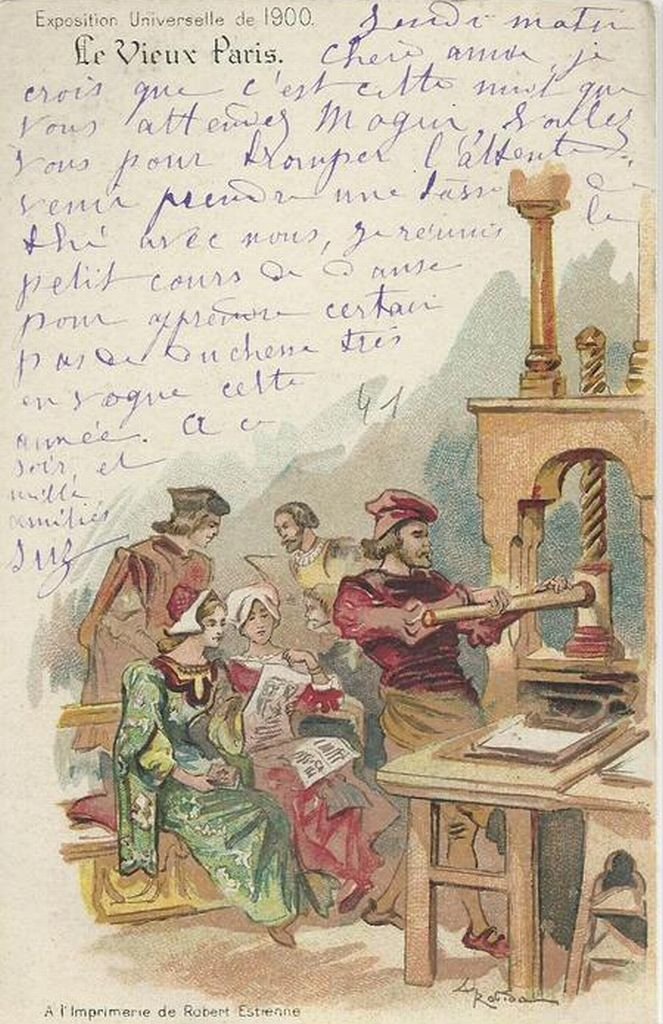 Exposition Universelle de 1900.
Le Vieux Paris.
matin
chere amie, je
crois que c'est cette nuit que
vous attendez voulez
vous pour tromper l'attente,
venir prendre une tasse de
thé avec nous, je réunis le
petit cours de danse
pour apprendre certain
pas de duchesse très
en vogue cette
année. a ce
soir, et
mille
amitiés
Suz
41
A. Robida
A l'Imprimerie de Robert Estienne